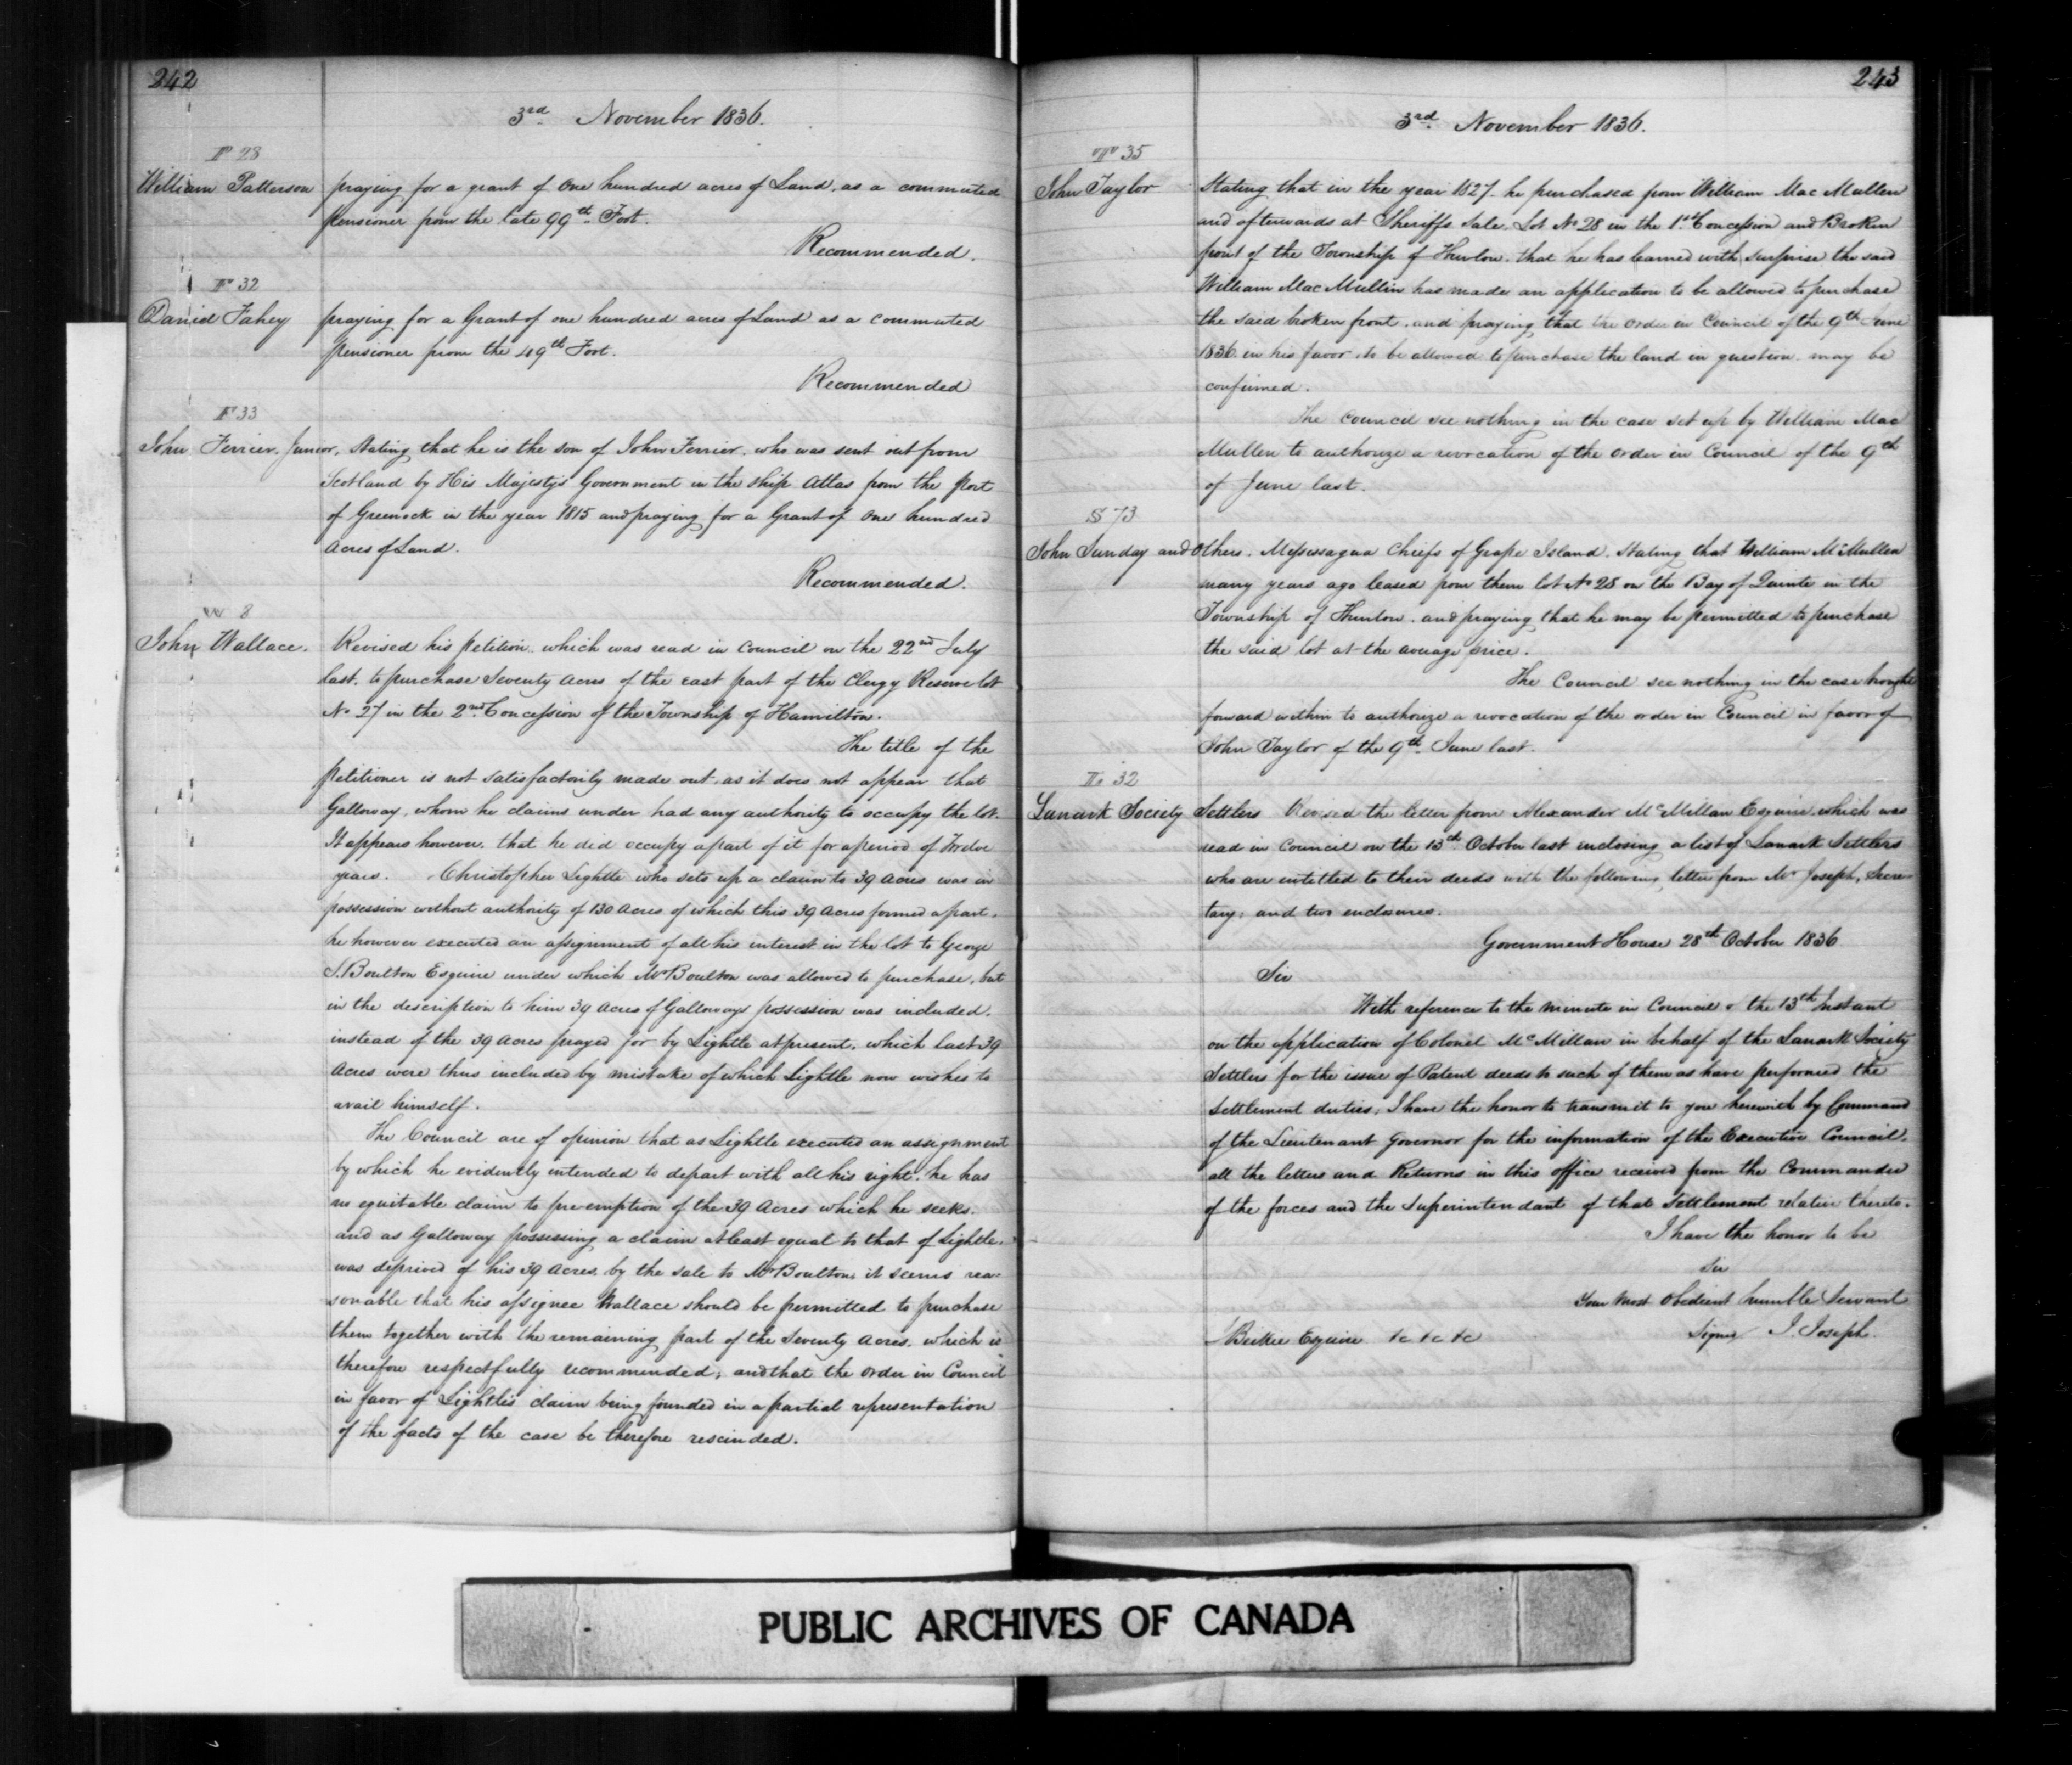 242
3rd. November 1836.
No 28
William Patterson praying for a grant of One hundred acres of Land, as a commuted
pensioner from the late 99th Foot.
Recommended.
No 32
Daniel Fahey praying for a Grant of one hundred acres of Land as a commuted
pensioner from the 49th Foot.
Recommended
33
John Ferrier, Junior, Stating that he is the son of John Ferrier, who was sent out from
Scotland by His Majesty's Government in the ship Atlas from the Port
of Greenock in the year 1815 and praying for a Grant of One hundred
Acres of Land.
Recommended.
W 8
John Wallace. Revised his petition, which was read in Council on the 22nd July
last, to purchase Seventy Acres of the east part of the Clergy Reserve lot
No 27 in the 2nd Concession of the Township of Hamilton.
The title of the
petitioner is not satisfactorily made out, as it does not appear that
Galloway, whom he claims under had any authority to occupy the lot.
It appears however, that he did occupy a part of it for a period of Twelve
years. Christopher Lightle who sets up a claim to 39 Acres was in
possession without authority of 130 Acres of which this 39 Acres formed a part.
he however executed an assignment of all his interest in the lot to George
S. Boulton Esquire under which Mr Boulton was allowed to purchase, but
in the description to him 39 Acres of Galloways possession was included,
instead of the 39 Acres prayed for by Lightle at present, which last 39
Acres were thus included by mistake of which Lightle now wishes to
avail himself.
The Council are of opinion that as Lightle executed an assignment
by which he evidently intended to depart with all his right, he has
no equitable claim to pre-emption of the 39 Acres which he seeks.
and as Galloway possessing a claim at least equal to that of Lightle,
was deprived of his 39 Acres, by the sale to Mr Boulton, it seems rea-
sonable that his assignee Wallace should be permitted to purchase
them together with the remaining part of the Seventy Acres, which is
therefore respectfully recommended; and that the Order in Council
in favor of Lightle's claim being founded in a partial representation
of the facts of the case be therefore rescinded.
243
3rd. November 1836.
No 35
John Taylor Stating that in the year 1827 he purchased from William Mac Mullen
and afterwards at Sheriffs Sale, Lot No 28 in the 1st Concession and Broken
front of the Township of Thurlow, that he has learned with surprise the said
William Mac Mullin has made an application to be allowed to purchase
the said broken front, and praying that the Order in Council of the 9th June
1836 in his favor, to be allowed to purchase the land in question may be
confirmed.
The Council see nothing in the case set up by William Mac
Mullen to authorize a revocation of the Order in Council of the 9th
of June last.
S 73
John Sunday and Others, Missisagua Chiefs of Grape Island, Stating that William McMullen
many years ago leased from them lot No 28 on the Bay of Quinte in the
Township of Thurlow, and praying that he may be permitted to purchase
the said lot at the average price.
The Council see nothing in the case brought
forward within to authorize a revocation of the order in Council in favor of
John Taylor of the 9th June last.
32
Lanark Society Settlers Revised the letter from Alexander McMillan Esquire, which was
read in Council on the 13th October last inclosing a list of Lanark Settlers
who are intitled to their deeds with the following letter from Mr Joseph, Secre-
tary; and two enclosures.
Government House 28th October 1836
Sir
With reference to the Minute in Council of the 13th Instant
on the application of Colonel McMillan in behalf of the Lanark Society
Settlers for the issue of Patent deeds to such of them as have performed the
Settlement duties; I have the honor to transmit to you herewith by Command
of the Lieutenant Governor for the information of the Executive Council,
all the letters and Returns in this office received from the Commander
of the forces and the Superintendant of that Settlement relative thereto.
I have the honor to be
Sir
Your Most Obedient humble Servant
Signed J. Joseph.
Beikie Esquire &c &c &c
PUBLIC ARCHIVES OF CANADA